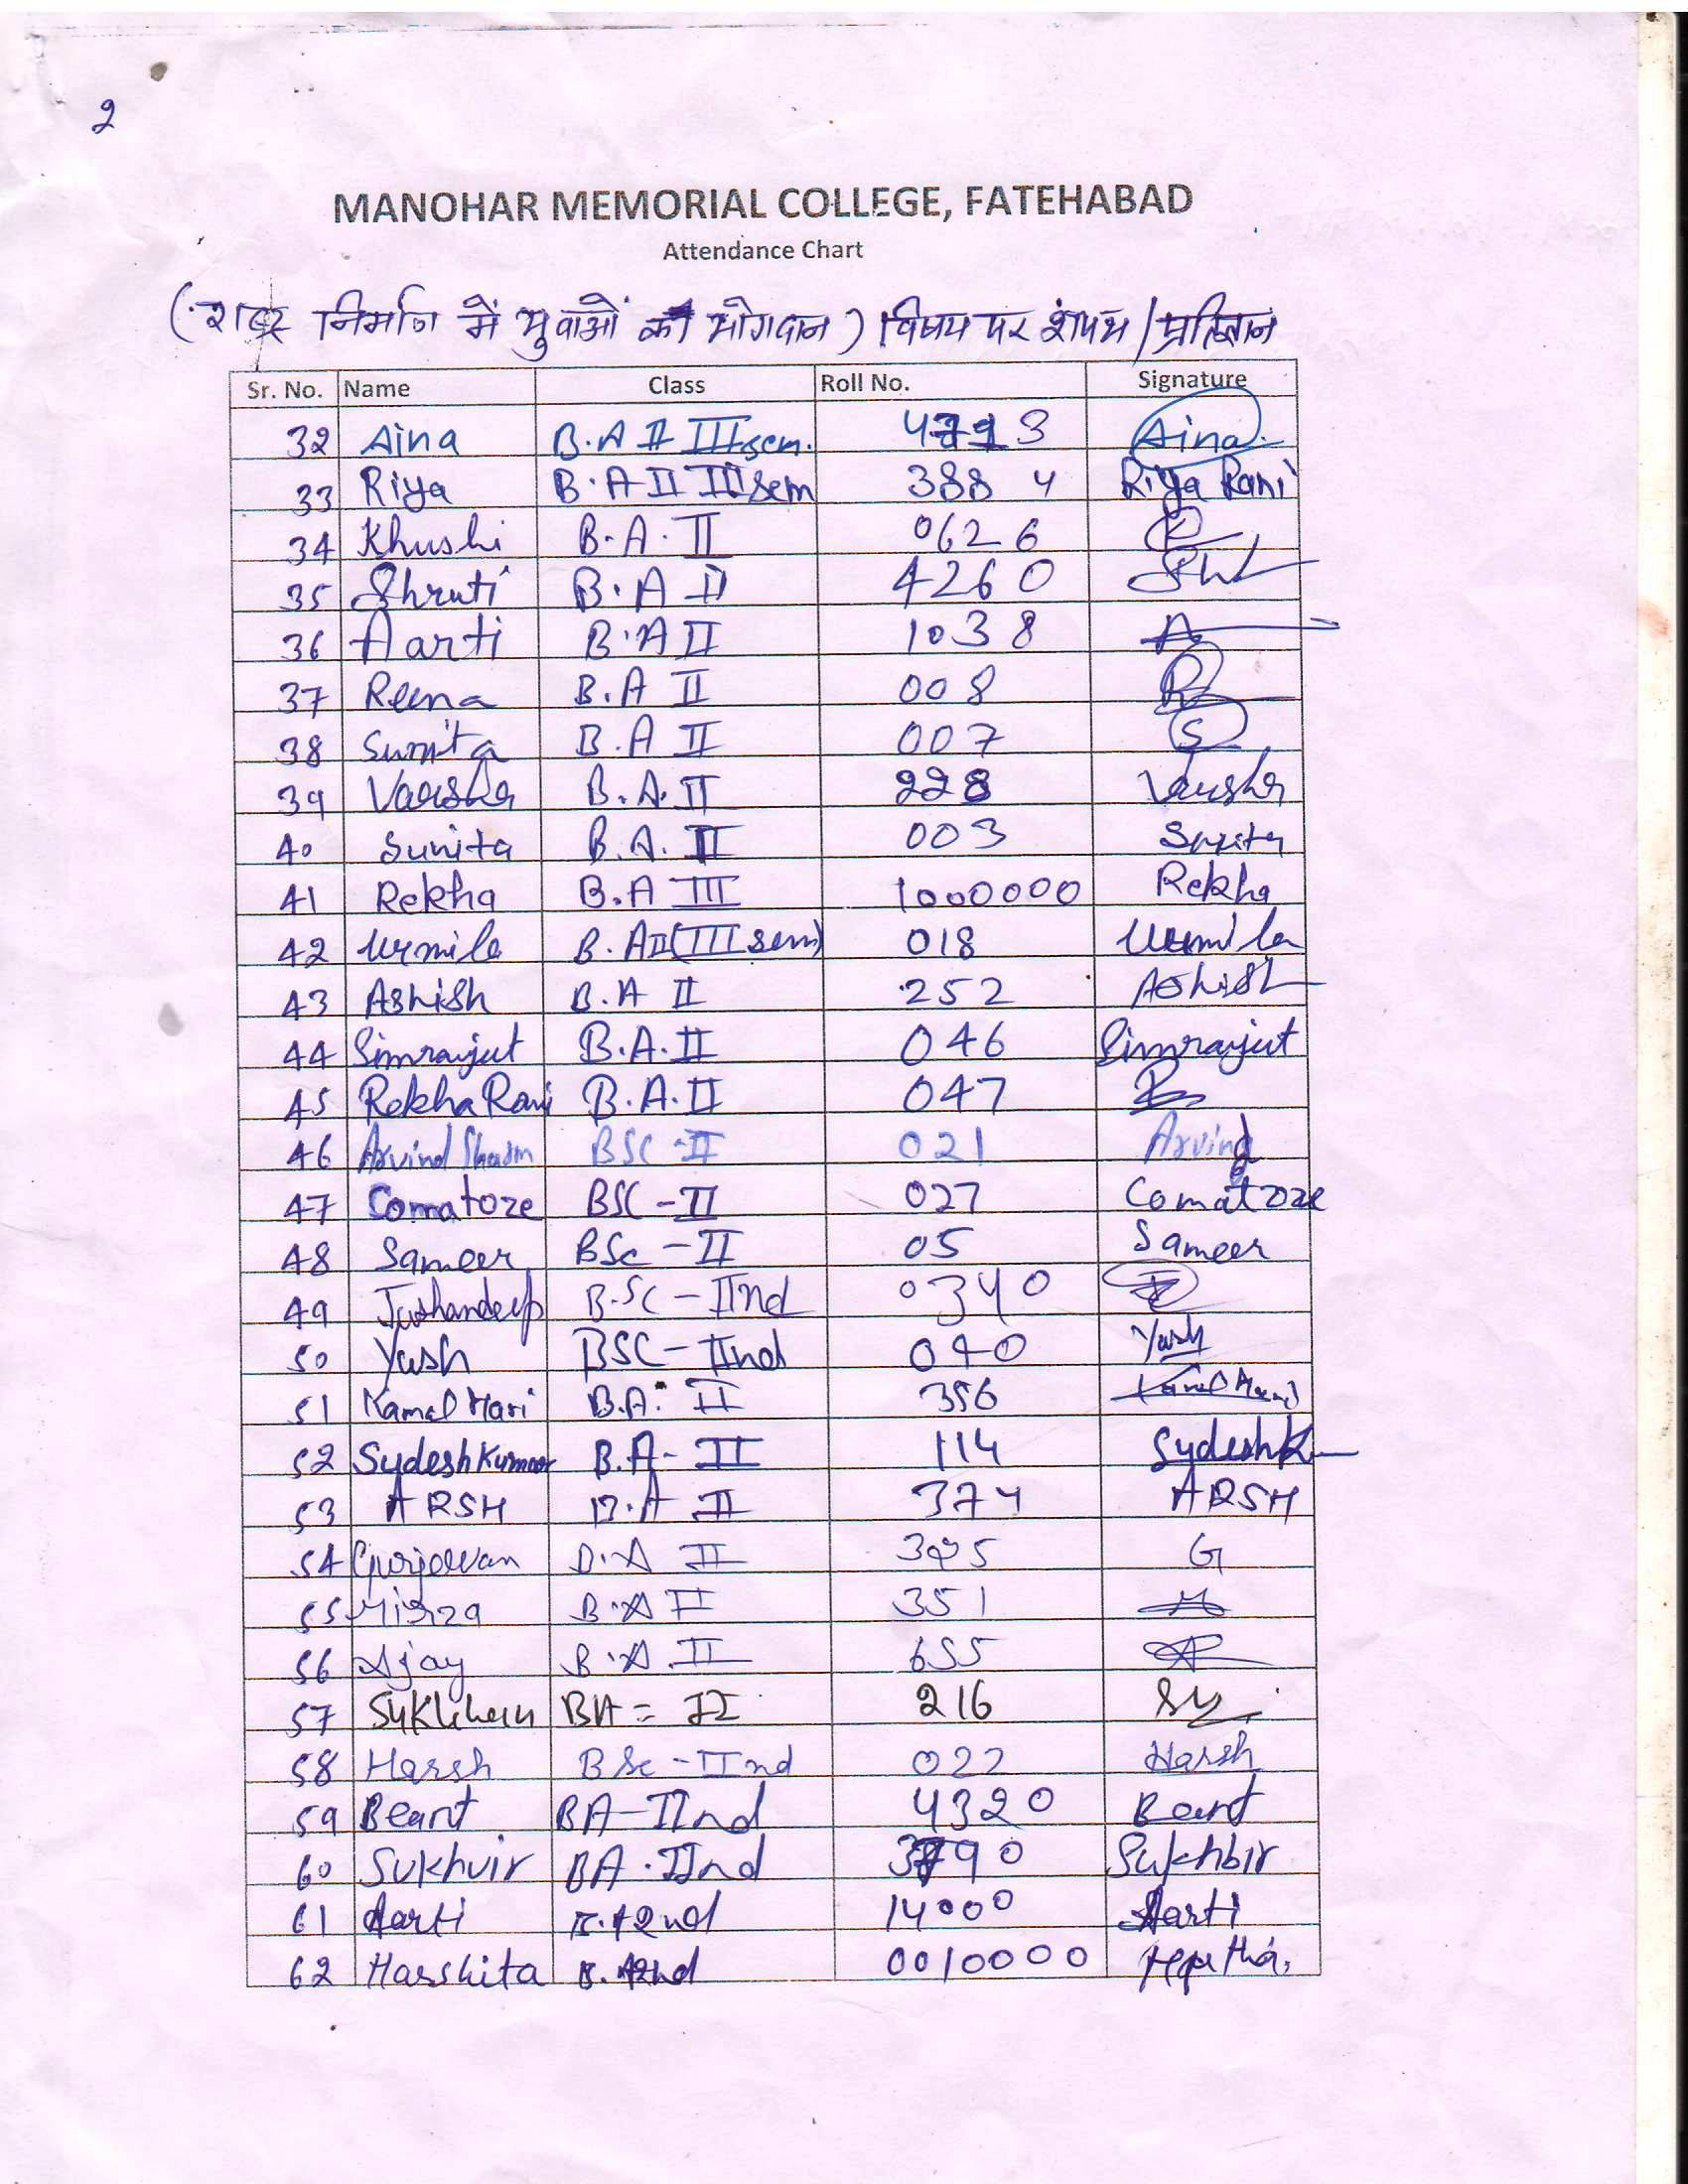 2
MANOHAR MEMORIAL COLLEGE, FATEHABAD
Attendance Chart
निर्माण में युवाओं का योगदान) विषय पर शपथ/
Sr. No. Name Class Roll No. Signature
32 Aina B.A II III sem. 3 Aina
33 Riya B.A II III sem 3884 Riya Rani
34 Khushi B.A. II 0626
35 Shruti B.A II 4260
36 Aarti B.A II 1038 A
37 Reena B.A II 008 R
38 Sunita B.A II 007 S
39 Varsha B.A. II 228 Varsha
40 Sunita B.A. II 003 Sunita
41 Rekha B.A III 1000000 Rekha
42 Urmila B.A II (III sem) 018 Urmila
43 Ashish B.A II 252 Ashish
44 Simranjut B.A. II 046 Simranjut
45 Rekha Rani B.A. II 047
46 Arvind Sharm BSC-II 021 Arvind
47 Comatoze BSC-II 027 Comatoze
48 Sameer BSc-II 05 Sameer
49 B.SC-IInd 0340
50 Yash BSC-IInd 040 Yash
51 Kamal Hari B.A. II 356
52 Sydesh Kumar B.A-II 114 Sydesh K
53 ARSH B.A II 374 ARSH
54 Gurjeevan B.A II G
55 Mirza B.A II 351 M
56 Ajay B.A. II 655 A
57 BA = II 216
58 Harsh BSc-IInd 022 Harsh
59 Beant BA-IInd 4320 Beant
60 Sukhvir BA.IInd Sukhbir
61 Aarti 2nd 14000 Aarti
62 Harshita 2nd 0010000